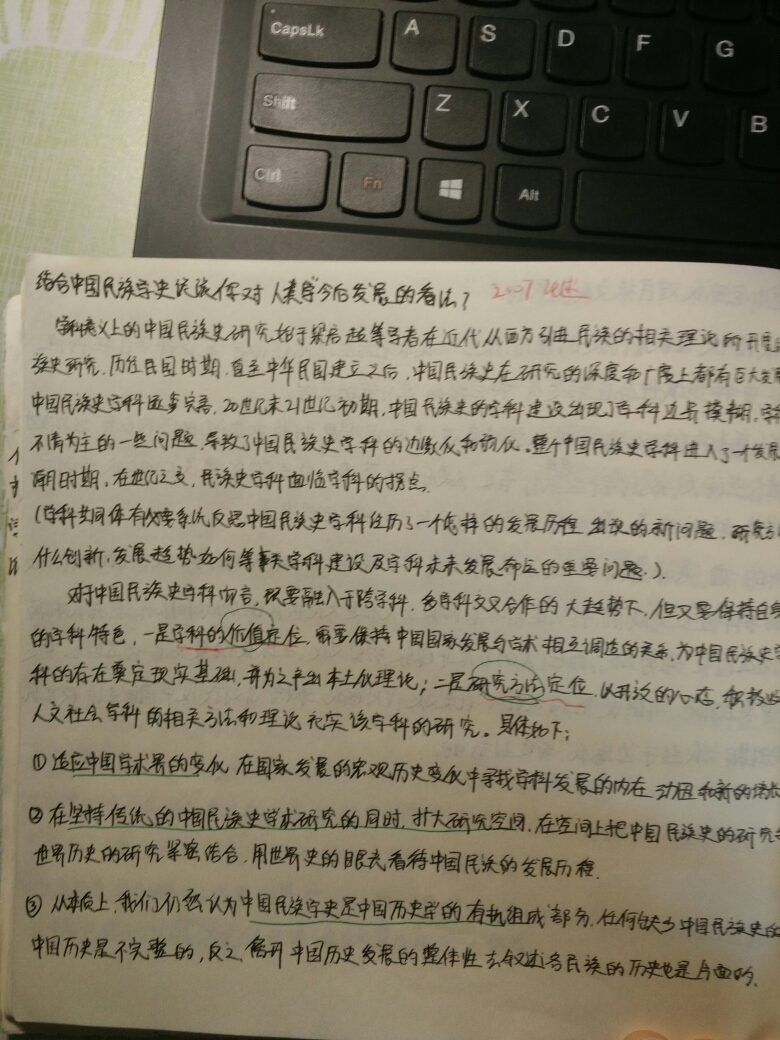 CapsLk A S D F G
Shift Z X C V B
Ctrl Fn Alt
结合中国民族学史谈谈你对人类学今后发展的看法? 2007论述
学科意义上的中国民族史研究始于梁启超等学者在近代从西方引进民族的相关理论所开展
族史研究,历经民国时期,直至中华民国建立之后,中国民族史在研究的深度和广度上都有巨大发
中国民族史学科逐步完善,20世纪末21世纪初期,中国民族史的学科建设出现了学科边界模糊,
不清为主的一些问题,导致了中国民族史学科的边缘化和弱化。整个中国民族史学科进入了一个发展
期时期,在世纪之交,民族史学科面临学科的拐点.
(学科共同体有必要系统反思中国民族史学科经历了一个怎样的发展历程 出现的新问题,研究
什么创新,发展趋势如何等事关学科建设及学科未来发展命运的重要问题.).
对于中国民族史学科而言,既要融入于跨学科,多学科交叉合作的大趋势下,但又要保持自身
的学科特色,一是学科的价值定位,需要保持中国国家发展与学术相互调适的关系,为中国民族史学
科的存在奠定现实基础,并为之产出本土化理论;二是研究方法定位,以开放的心态,积极
人文社会学科的相关方法和理论充实该学科的研究。具体如下:
①适应中国学术界的变化 在国家发展的宏观历史变化中寻找学科发展的内在动因和新的增长
②在坚持传统的中国民族史学术研究的同时,扩大研究空间,在空间上把中国民族史的研究
世界历史的研究紧密结合,用世界史的眼光看待中国民族的发展历程.
③从本质上,我们仍然认为中国民族学史是中国历史学的有机组成部分,任何缺少中国民族史的
中国历史是不完整的,反之,离开中国历史发展的整体性去叙述各民族的历史也是片面的.